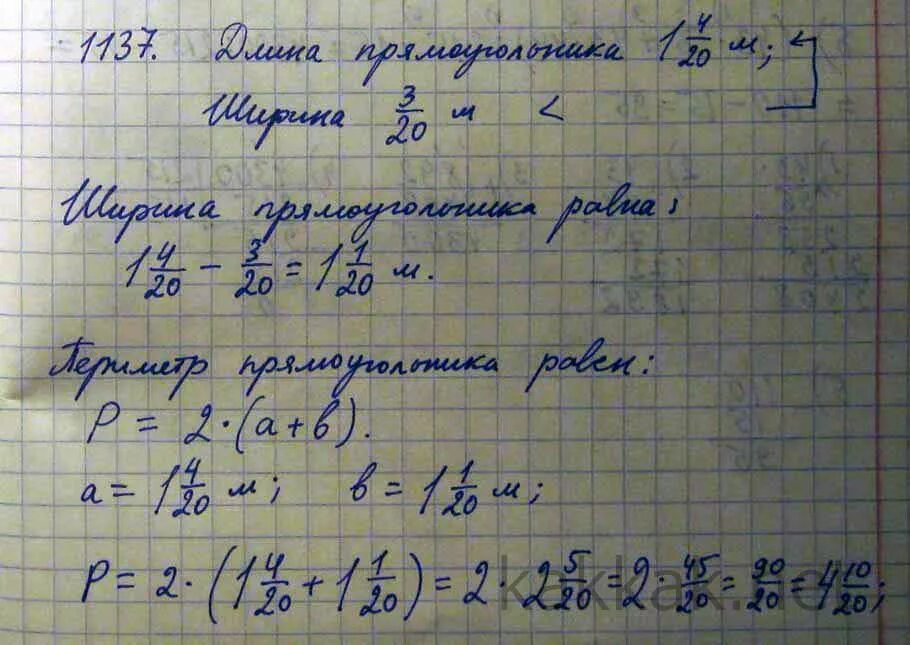 1137. Длина прямоугольника 1 4/20 м;
Ширина 3/20 м <
Ширина прямоугольника равна:
1 4/20 - 3/20 = 1 1/20 м.
Периметр прямоугольника равен:
P = 2·(a+b).
a = 1 4/20 м; b = 1 1/20 м;
P = 2·(1 4/20 + 1 1/20) = 2·2 5/20 = 2·45/20 = 90/20 = 4 10/20;